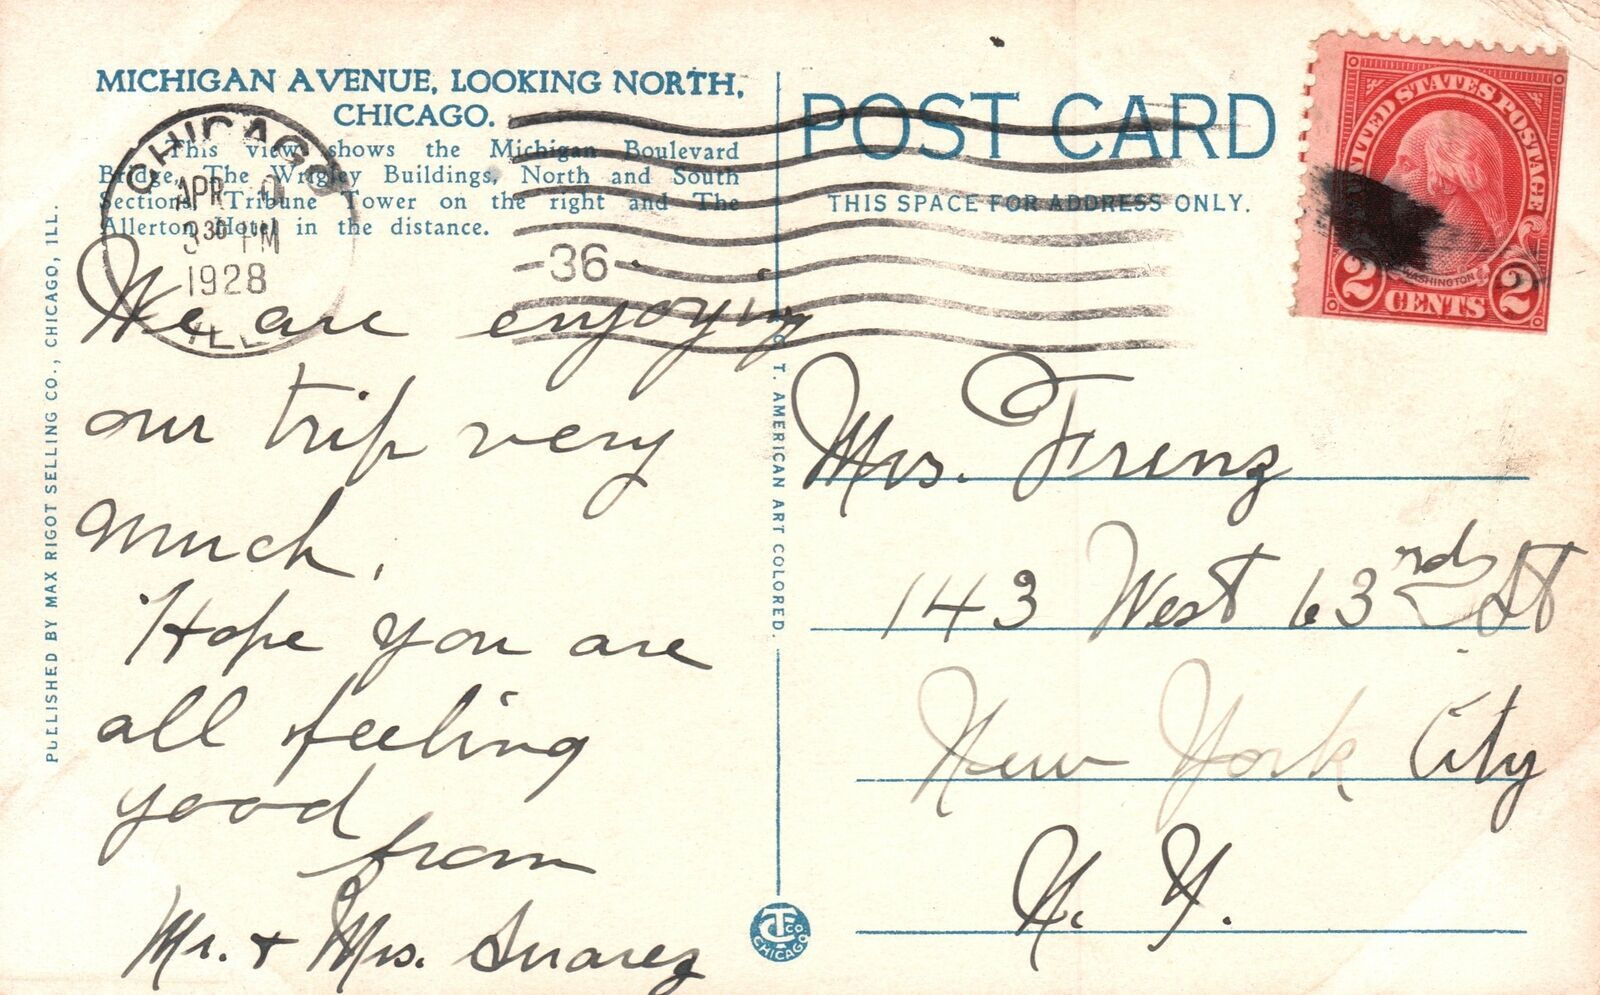 MICHIGAN AVENUE, LOOKING NORTH,
CHICAGO.
This view shows the Michigan Boulevard
Bridge, The Wrigley Buildings, North and South
Sections, Tribune Tower on the right and The
Allerton Hotel in the distance.
CHICAGO
APR
3 30 PM
1928
ILL
36
We are enjoying
our trip very
much,
Hope you are
all feeling
good
from
Mr. & Mrs. Suarez
PUBLISHED BY MAX RIGOT SELLING CO., CHICAGO, ILL.
C. T. AMERICAN ART COLORED.
CT CO
CHICAGO
POST CARD
THIS SPACE FOR ADDRESS ONLY.
UNITED STATES POSTAGE
WASHINGTON
2 CENTS 2
Mrs. Frenz
143 West 63rd St
New York City
N. Y.